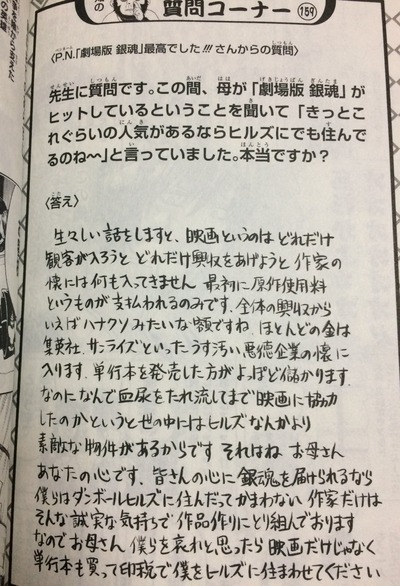 質問コーナー 159
〈P.N.「劇場版 銀魂」最高でした!!! さんからの質問〉
先生に質問です。この間、母が「劇場版 銀魂」が
ヒットしているということを聞いて「きっとこ
れぐらいの人気があるならヒルズにでも住んで
るのね〜」と言っていました。本当ですか？
〈答え〉
生々しい話をしますと、映画というのは どれだけ
観客が入ろうと どれだけ興収をあげようと 作家の
懐には何も入ってきません 最初に原作使用料
というものが支払われるのみです。全体の興収から
いえばハナクソみたいな額ですね。ほとんどの金は
集英社、サンライズといったうす汚い悪徳企業の懐に
入ります。単行本を発売した方がよっぽど儲かります。
なのになんで血尿をたれ流してまで映画に協力
したのかというと世の中にはヒルズなんかより
素敵な物件があるからです それはね お母さん
あなたの心です。皆さんの心に 銀魂を届けられるなら
僕らはダンボールヒルズに住んだってかまわない 作家だけは
そんな誠実な気持ちで 作品作りにとり組んでおります
なのでお母さん 僕らを哀れと思ったら 映画だけじゃなく
単行本も買って印税で僕をヒルズに住まわせてください